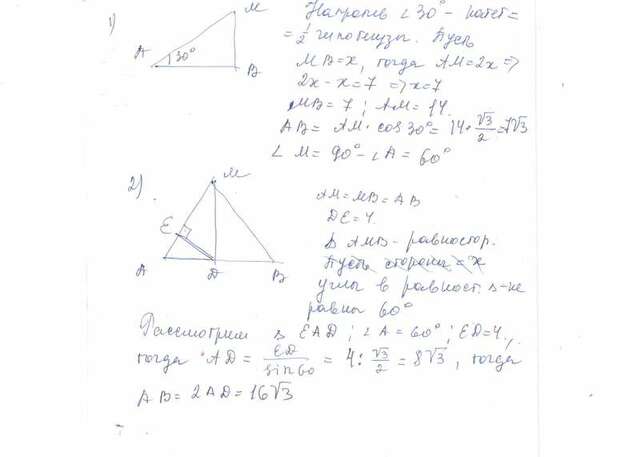 1)
M
A
30°
B
Напротив ∠30° - катет =
= 1/2 гипотенузы. Пусть
MB = x, тогда AM = 2x =>
2x - x = 7 => x = 7
MB = 7 ; AM = 14.
AB = AM · cos 30° = 14 · √3/2 = 7√3
∠ M = 90° - ∠A = 60°
2)
M
E
A
D
B
AM = MB = AB
DE = 4.
Δ AMB - равностор.
Пусть сторона = x
углы в равност. Δ-ке
равны 60°
Рассмотрим Δ EAD ; ∠A = 60° ; ED = 4.,
тогда AD = ED/sin60 = 4 : √3/2 = 8√3 , тогда
AB = 2AD = 16√3